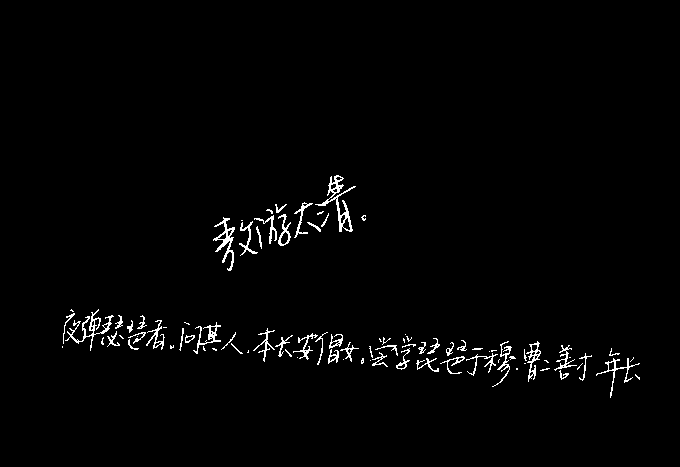 敖游太清。
夜弹琵琶者。问其人，本长安倡女，尝学琵琶于穆、曹二善才年长